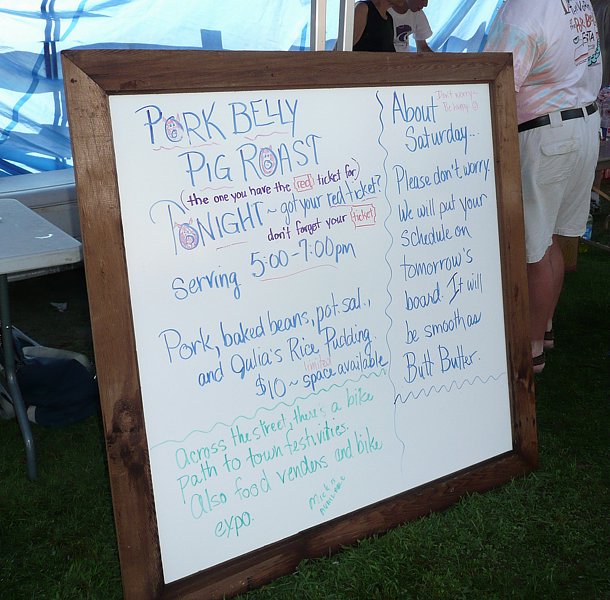 PORK BELLY
PIG ROAST
(the one you have the red ticket for)
TONIGHT ~ got your red ticket?
don't forget your ticket
Serving 5:00-7:00pm
Pork, baked beans, pot. sal.,
and Julia's Rice Pudding.
limited
$10 ~ space available
Across the street, there's a bike
path to town festivities.
Also food venders and bike
expo.
About
Don't worry~
Be happy
Saturday...
Please don't worry.
We will put your
schedule on
tomorrow's
board. It will
be smooth as
Butt Butter.